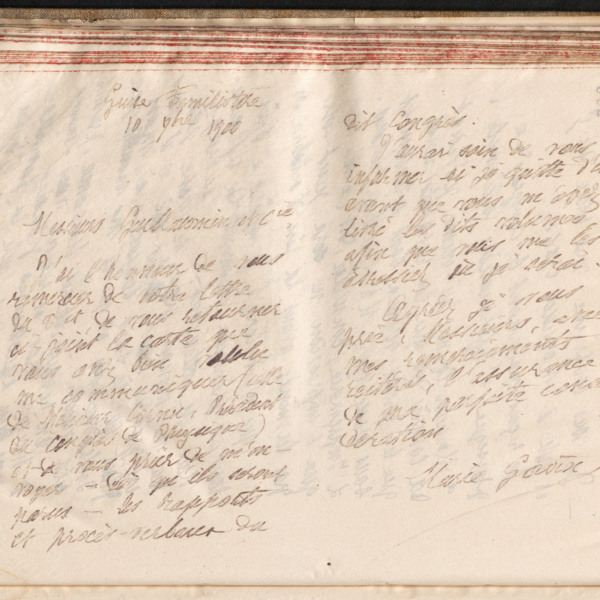 Guise Familistère
10 9bre 1900
Messieurs Guillaumin et Cie
J'ai l'honneur de vous
remercier de votre lettre
du 8 et de vous retourner
ci-joint la carte que
vous avez bien voulu
me communiquer (celle
de Monsieur Président
du congrès de
et de vous prier de m'en-
voyer - dès qu'ils seront
parus - les rapports
et procès-verbaux du
dit Congrès.
J'aurai soin de vous
informer si je quitte
avant que vous ne m'
livré les dits volumes
afin que vous me les
adressiez où je serai.
Agréez je vous
prie, Messieurs, avec
mes remerciements
réitérés, l'assurance
de ma parfaite consi
dération
Marie Godin